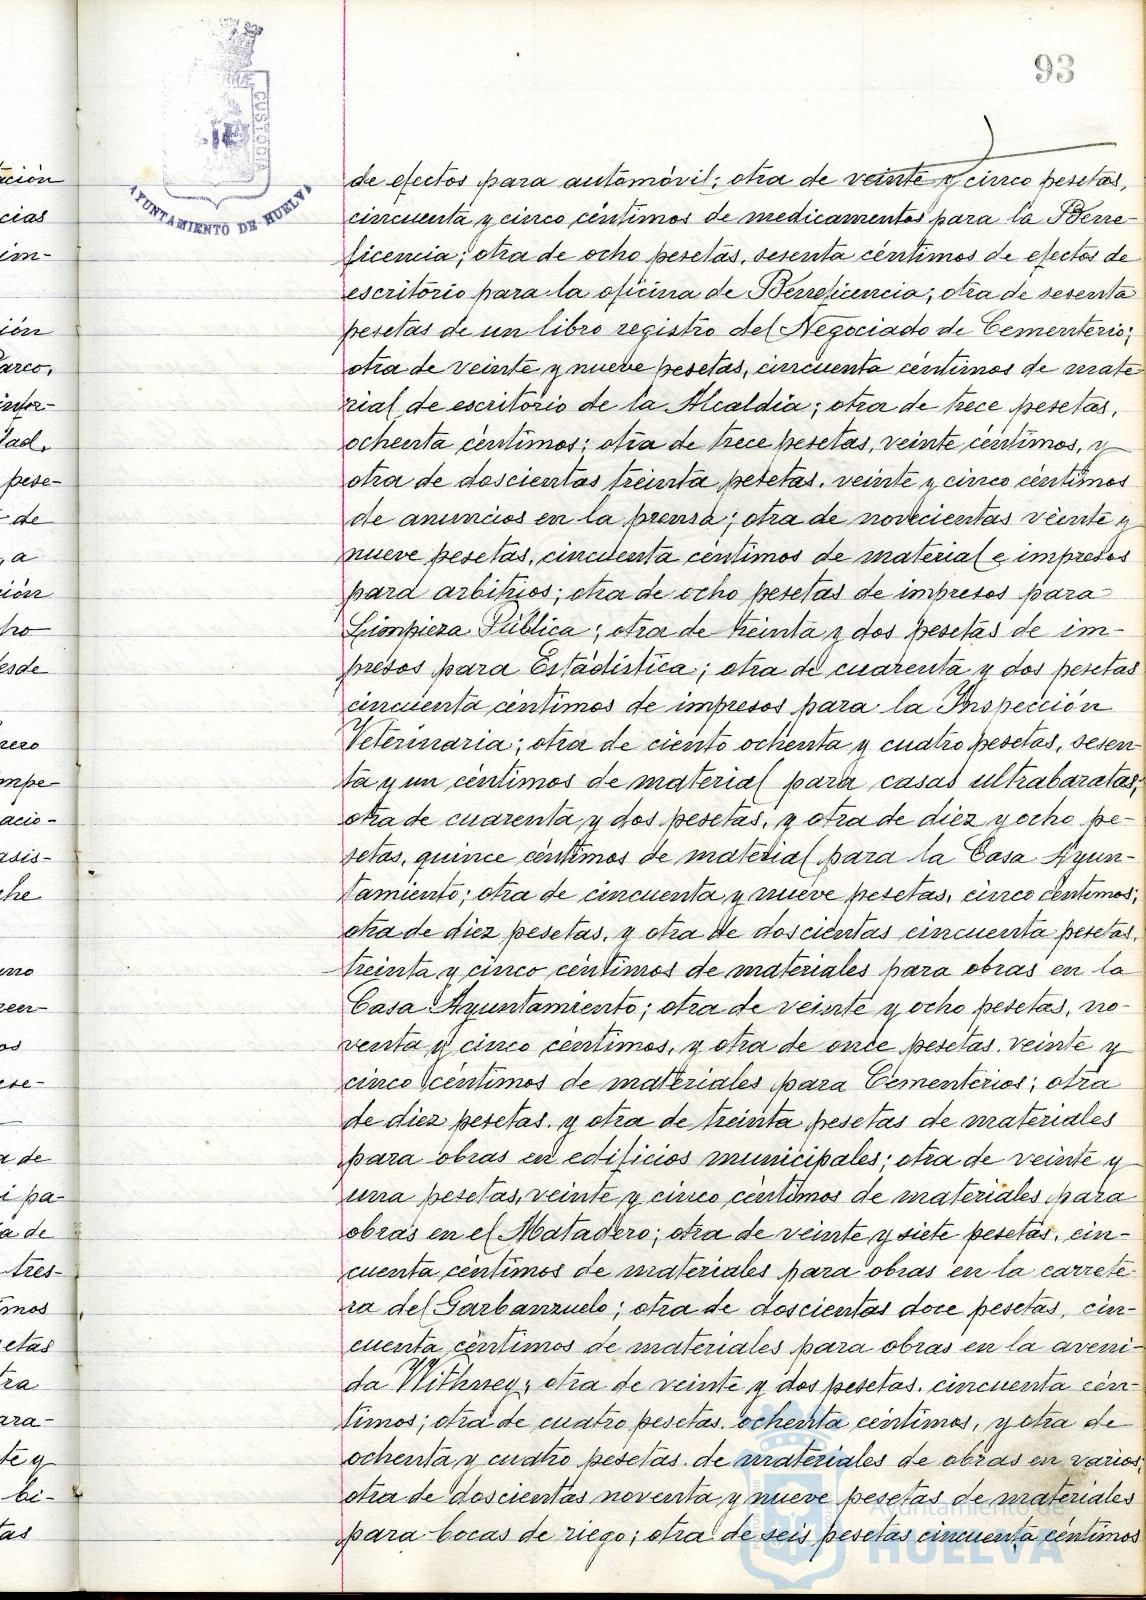 93
CUSTODIA
AYUNTAMIENTO DE HUELVA
ación
cias
im-
ión
Parco,
infor-
dad,
pese-
de
, a
ción
cho
esde
nero
mpe-
acio-
asis-
che
uno
reen-
os
ese-
a de
i pa-
a de
tres-
imos
setas
tra
ara-
te y
bi-
tas
de efectos para automóvil; otra de veinte y cinco pesetas,
cincuenta y cinco céntimos de medicamentos para la Bene-
ficencia; otra de ocho pesetas, sesenta céntimos de efectos de
escritorio para la oficina de Beneficencia; otra de sesenta
pesetas de un libro registro del Negociado de Cementerio;
otra de veinte y nueve pesetas, cincuenta céntimos de mate
rial de escritorio de la Alcaldía; otra de trece pesetas,
ochenta céntimos; otra de trece pesetas, veinte céntimos, y
otra de doscientas treinta pesetas, veinte y cinco céntimos
de anuncios en la prensa; otra de novecientas veinte y
nueve pesetas, cincuenta céntimos de material e impresos
para arbitrios; otra de ocho pesetas de impresos para
Limpieza Pública; otra de treinta y dos pesetas de im-
presos para Estadística; otra de cuarenta y dos pesetas
cincuenta céntimos de impresos para la Inspección
Veterinaria; otra de ciento ochenta y cuatro pesetas, sesen-
ta y un céntimos de material para casas ultrabaratas;
otra de cuarenta y dos pesetas, y otra de diez y ocho pe-
setas, quince céntimos de material para la Casa Ayun-
tamiento; otra de cincuenta y nueve pesetas, cinco céntimos;
otra de diez pesetas, y otra de doscientas cincuenta pesetas,
treinta y cinco céntimos de materiales para obras en la
Casa Ayuntamiento; otra de veinte y ocho pesetas, no-
venta y cinco céntimos, y otra de once pesetas, veinte y
cinco céntimos de materiales para Cementerios; otra
de diez pesetas, y otra de treinta pesetas de materiales
para obras en edificios municipales; otra de veinte y
una pesetas, veinte y cinco céntimos de materiales para
obras en el Matadero; otra de veinte y siete pesetas, cin-
cuenta céntimos de materiales para obras en la carrete-
ra del Garbanzuelo; otra de doscientas doce pesetas, cin-
cuenta céntimos de materiales para obras en la aveni-
da Withney; otra de veinte y dos pesetas, cincuenta cén-
timos; otra de cuatro pesetas, ochenta céntimos, y otra de
ochenta y cuatro pesetas de materiales de obras en varios;
otra de doscientas noventa y nueve pesetas de materiales
para bocas de riego; otra de seis pesetas cincuenta céntimos
Ayuntamiento de
HUELVA